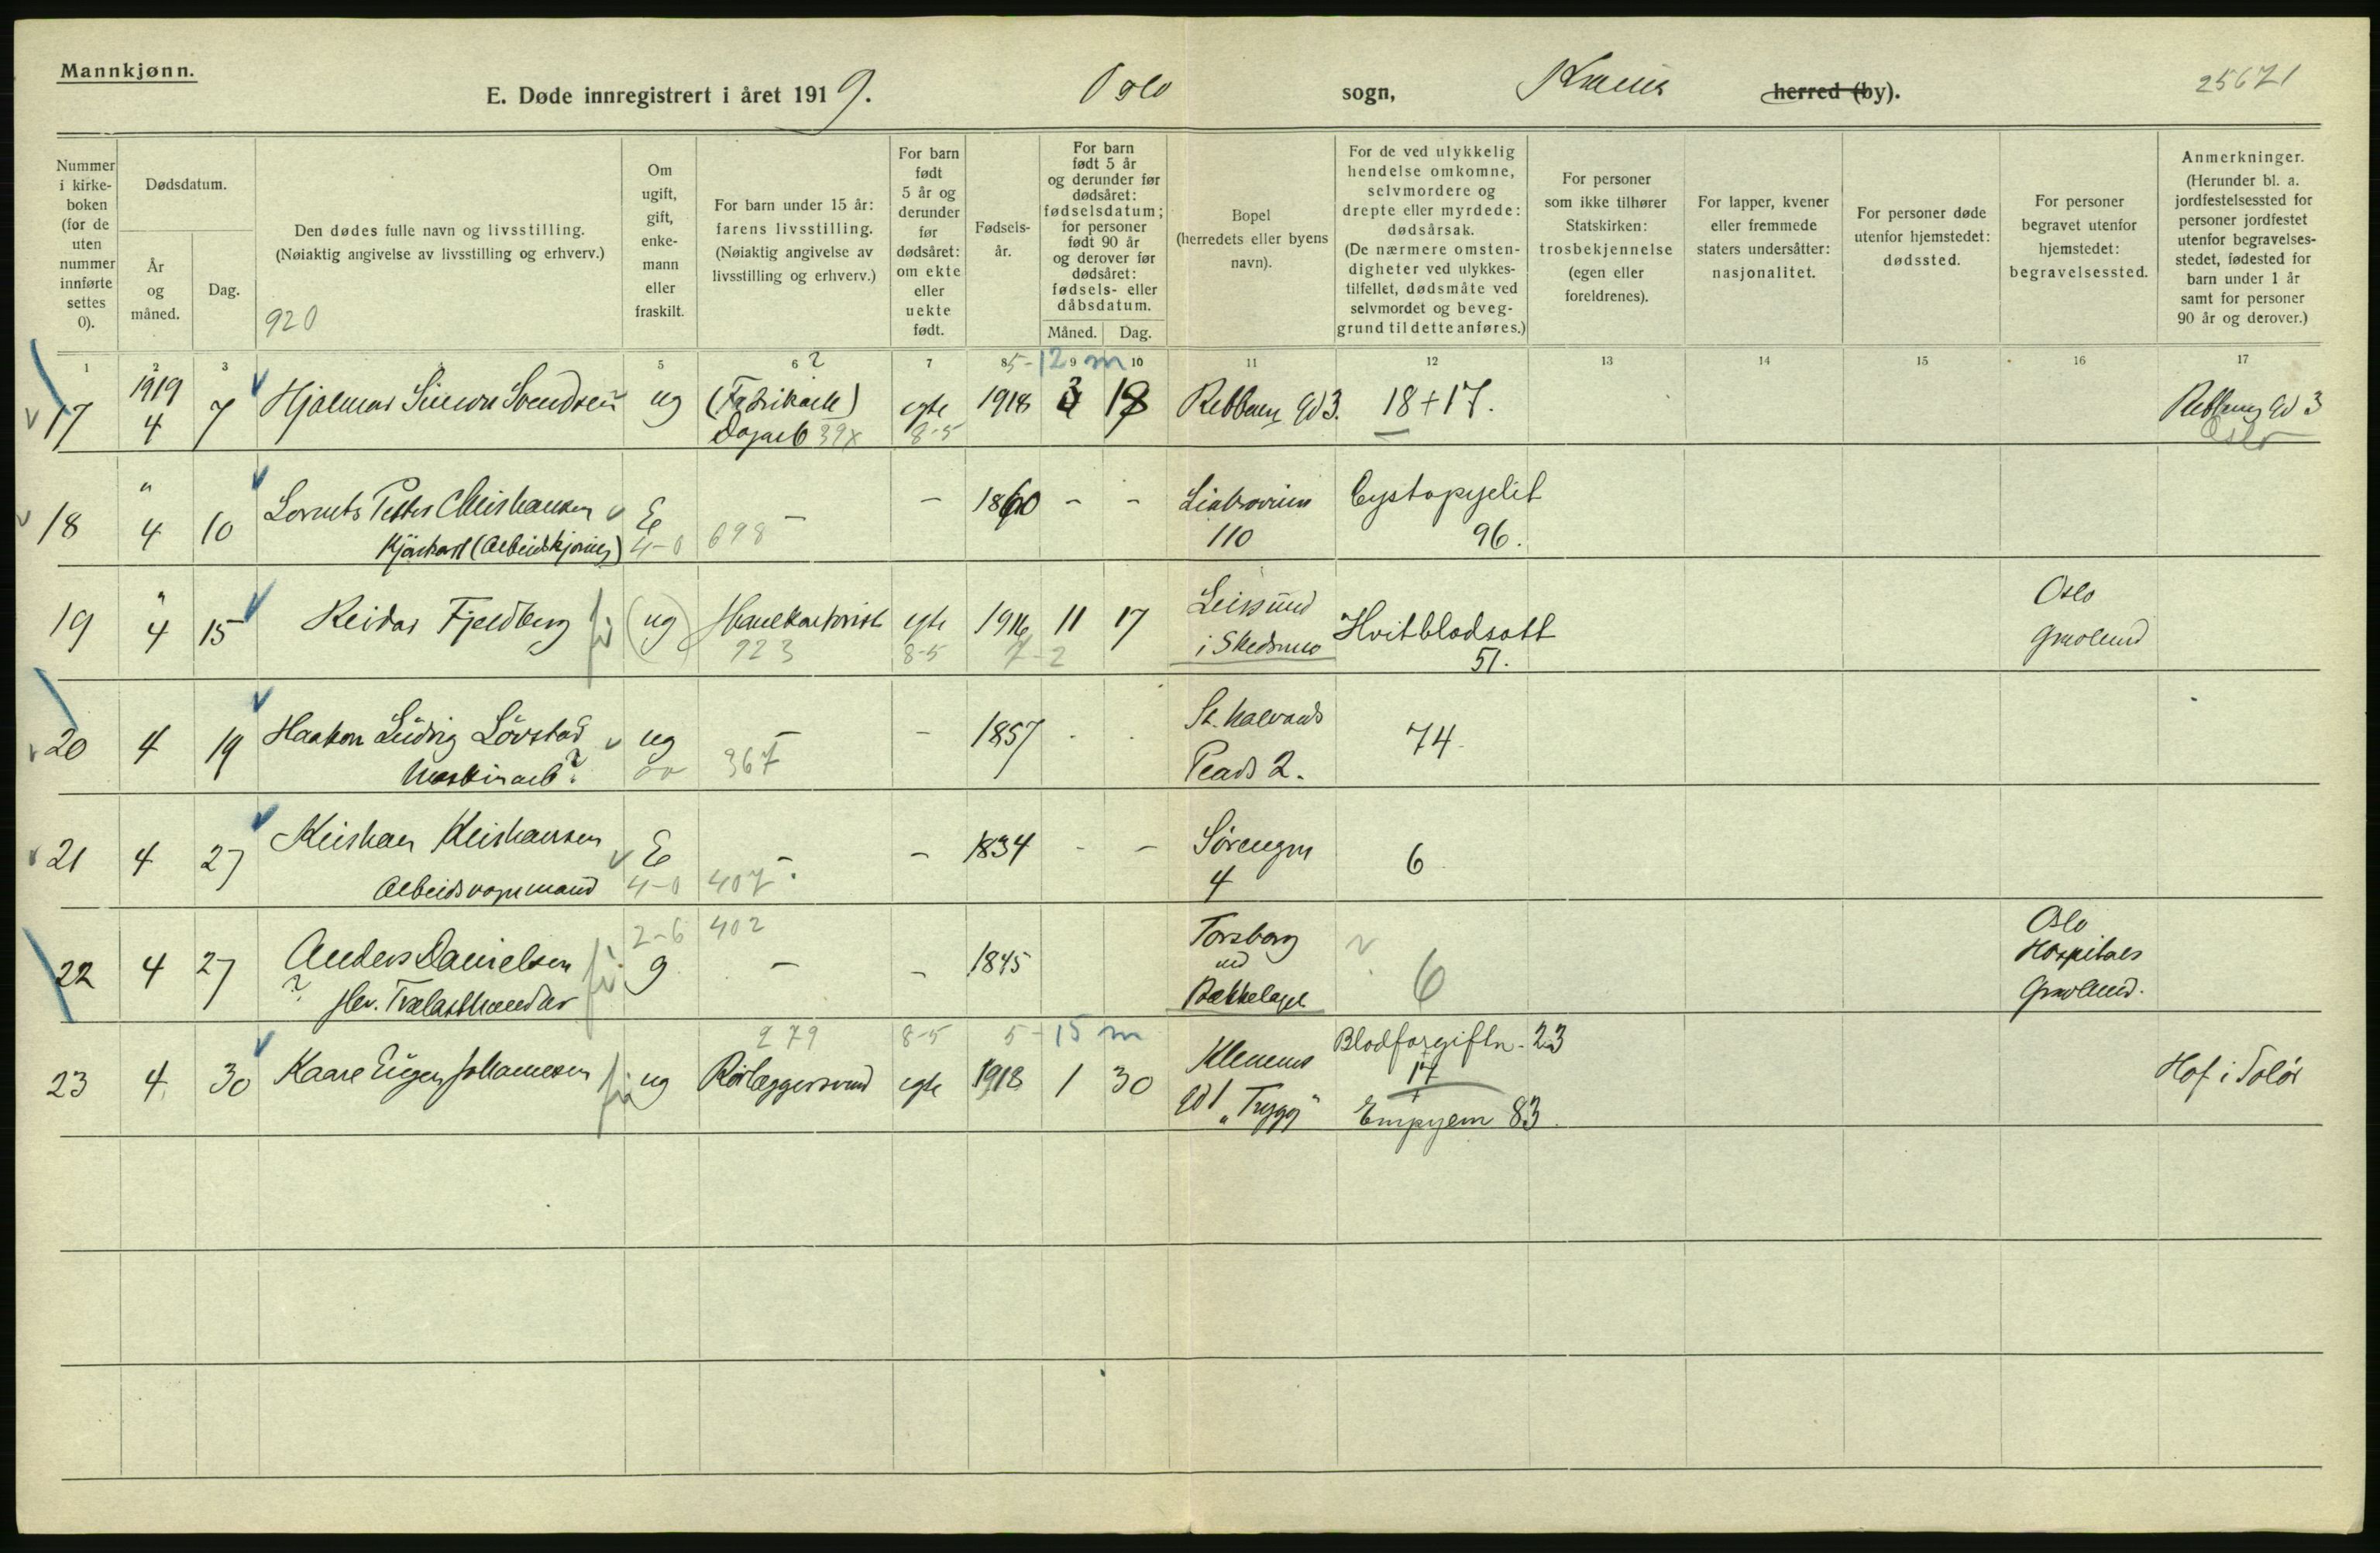 Mannkjønn.
E. Døde innregistrert i året 1919. Oslo sogn, herred (by). 25671
Nummer i kirkeboken (for de uten nummer innførte settes 0).
Dødsdatum.
År og måned.
Dag.
Den dødes fulle navn og livsstilling.
(Nøiaktig angivelse av livsstilling og erhverv.)
920
Om ugift, gift, enkemann eller fraskilt.
For barn under 15 år: farens livsstilling.
(Nøiaktig angivelse av livsstilling og erhverv.)
For barn født 5 år og derunder før dødsåret: om ekte eller uekte født.
Fødselsår.
For barn født 5 år og derunder før dødsåret: fødselsdatum; for personer født 90 år og derover før dødsåret: fødsels- eller dåbsdatum.
Måned. Dag.
Bopel (herredets eller byens navn).
For de ved ulykkelig hendelse omkomne, selvmordere og drepte eller myrdede: dødsårsak.
(De nærmere omstendigheter ved ulykkestilfellet, dødsmåte ved selvmordet og beveggrund til dette anføres.)
For personer som ikke tilhører Statskirken: trosbekjennelse (egen eller foreldrenes).
For lapper, kvener eller fremmede staters undersåtter: nasjonalitet.
For personer døde utenfor hjemstedet: dødssted.
For personer begravet utenfor hjemstedet: begravelsessted.
Anmerkninger.
(Herunder bl. a. jordfestelsessted for personer jordfestet utenfor begravelsesstedet, fødested for barn under 1 år samt for personer 90 år og derover.)
1 2 3 5 6 2 7 8 5-12 m 9 10 11 12 13 14 15 16 17
17 1919 4 7 Hjalmar Simon Svendsen ug (Fabrikarb) egte 1918 3 18 18+17.
Dagarb 39x 8-5 Oslo
18 " 4 10 Lornts Petter Christiansen E - 1860 - - 110 Cystopyelit
Kjørekarl (Arbeidskjøring) 4-0 698 96.
19 " 4 15 Reidar Fjeldberg (ug) egte 1916 11 17 i Skedsmo Hvitblodsott Oslo
923 8-5 7-2 51. Gravlund
20 4 19 Haakon Ludvig Løvstad ug - - 1857 St. Halvards 74
Maskinarb? 367 Plads 2.
21 4 27 Kristian Kristiansen E - - 1834 - - Sørengen 6
Arbeidsvognmand 4-0 407 4
22 4 27 Anders Danielsen g - - 1845 Torsborg 6 Oslo
2-6 402 ved Hospitals
? fhv. Trælasthandler Bækkelaget Gravlund.
279 8-5 5-15 m
23 4 30 Kaare Eugen Johannesen ug Rørlæggersvend egte 1918 1 30 Klemens Blodforgiftn. 23 Hof i Solør
gd 1 "Trygg" 17
Empyem 83.